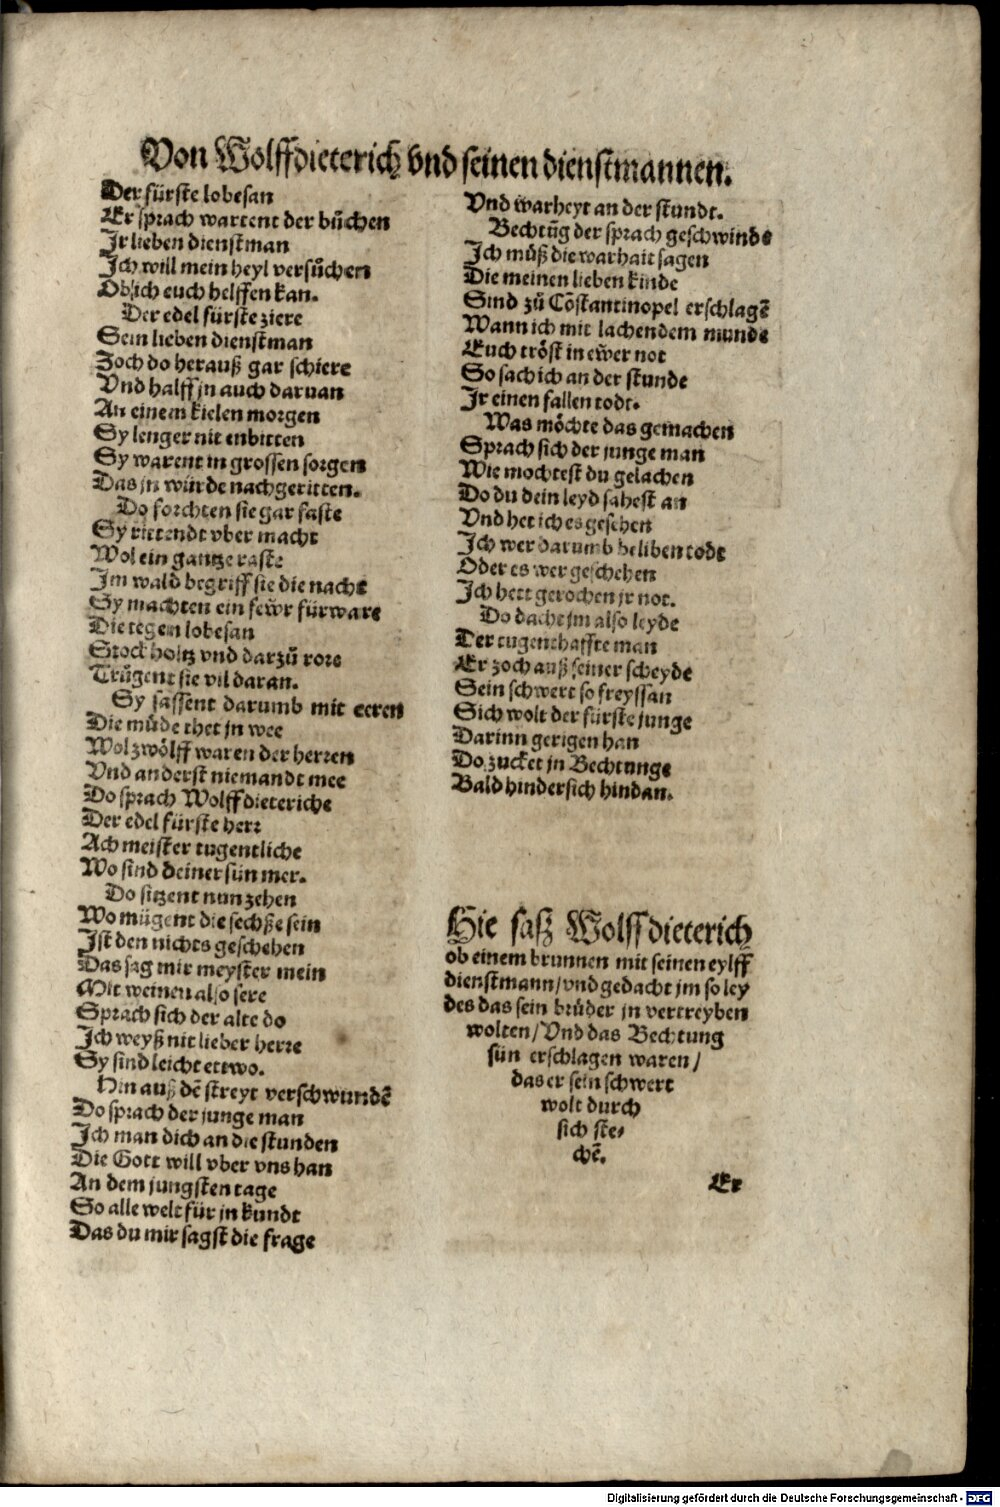 Von Wolffdieterich vnd seinen dienstmannen.
Der fürste lobesan
Er sprach wartent der bůchen
Jr lieben dienstman
Ich will mein heyl versůchen
Ob ich euch helffen kan.
Der edel fürste ziere
Sein lieben dienstman
Zoch do herauß gar schiere
Vnd halff jn auch daruan
An einem kielen morgen
Sy lenger nit enbitten
Sy warent in grossen sorgen
Das jn würde nachgeritten.
Do forchten sie gar faste
Sy rittendt vber macht
Wol ein gantze raste
Im wald begriff sie die nacht
Sy machten ein fewr fürware
Die tegen lobesan
Stock holtz vnd darzů rore
Trůgent sie vil daran.
Sy sassent darumb mit eeren
Die můde thet jn wee
Wol zwölff waren der herren
Vnd anderst niemandt mee
Do sprach Wolffdieteriche
Der edel fürste herr
Ach meister tugentliche
Wo sind deiner sün mer.
Do sitzent nun zehen
Wo mügent die sechße sein
Ist den nichts geschehen
Das sag mir meyster mein
Mit weinen also sere
Sprach sich der alte do
Ich weyß nit lieber herre
Sy sind leicht ettwo.
Hin auß dē streyt verschwundē
Do sprach der junge man
Ich man dich an die stunden
Die Gott will vber vns han
An dem jungsten tage
So alle welt für jn kundt
Das du mir sagst die frage
Vnd warheyt an der stundt.
Bechtūg der sprach geschwinde
Ich můß die warhait sagen
Die meinen lieben kinde
Sind zů Cōstantinopel erschlagē
Wann ich mit lachendem munde
Euch tröst in ewer not
So sach ich an der stunde
Jr einen fallen todt.
Was möchte das gemachen
Sprach sich der junge man
Wie mochtest du gelachen
Do du dein leyd sahest an
Vnd het ich es gesehen
Ich wer darumb beliben todt
Oder es wer geschehen
Ich hett gerochen jr not.
Do dacht jm also leyde
Der tugenthaffte man
Er zoch auß seiner scheyde
Sein schwert so freyssan
Sich wolt der fürste junge
Darinn gerigen han
Do zucket jn Bechtunge
Bald hindersich hindan.
Hie saß Wolffdieterich
ob einem brunnen mit seinen eylff
dienstmann/vnd gedacht jm so ley
des das sein brůder jn vertreyben
wolten/Vnd das Bechtung
sün erschlagen waren/
das er sein schwert
wolt durch
sich ste⸗
chē.
Er
Digitalisierung gefördert durch die Deutsche Forschungsgemeinschaft - DFG